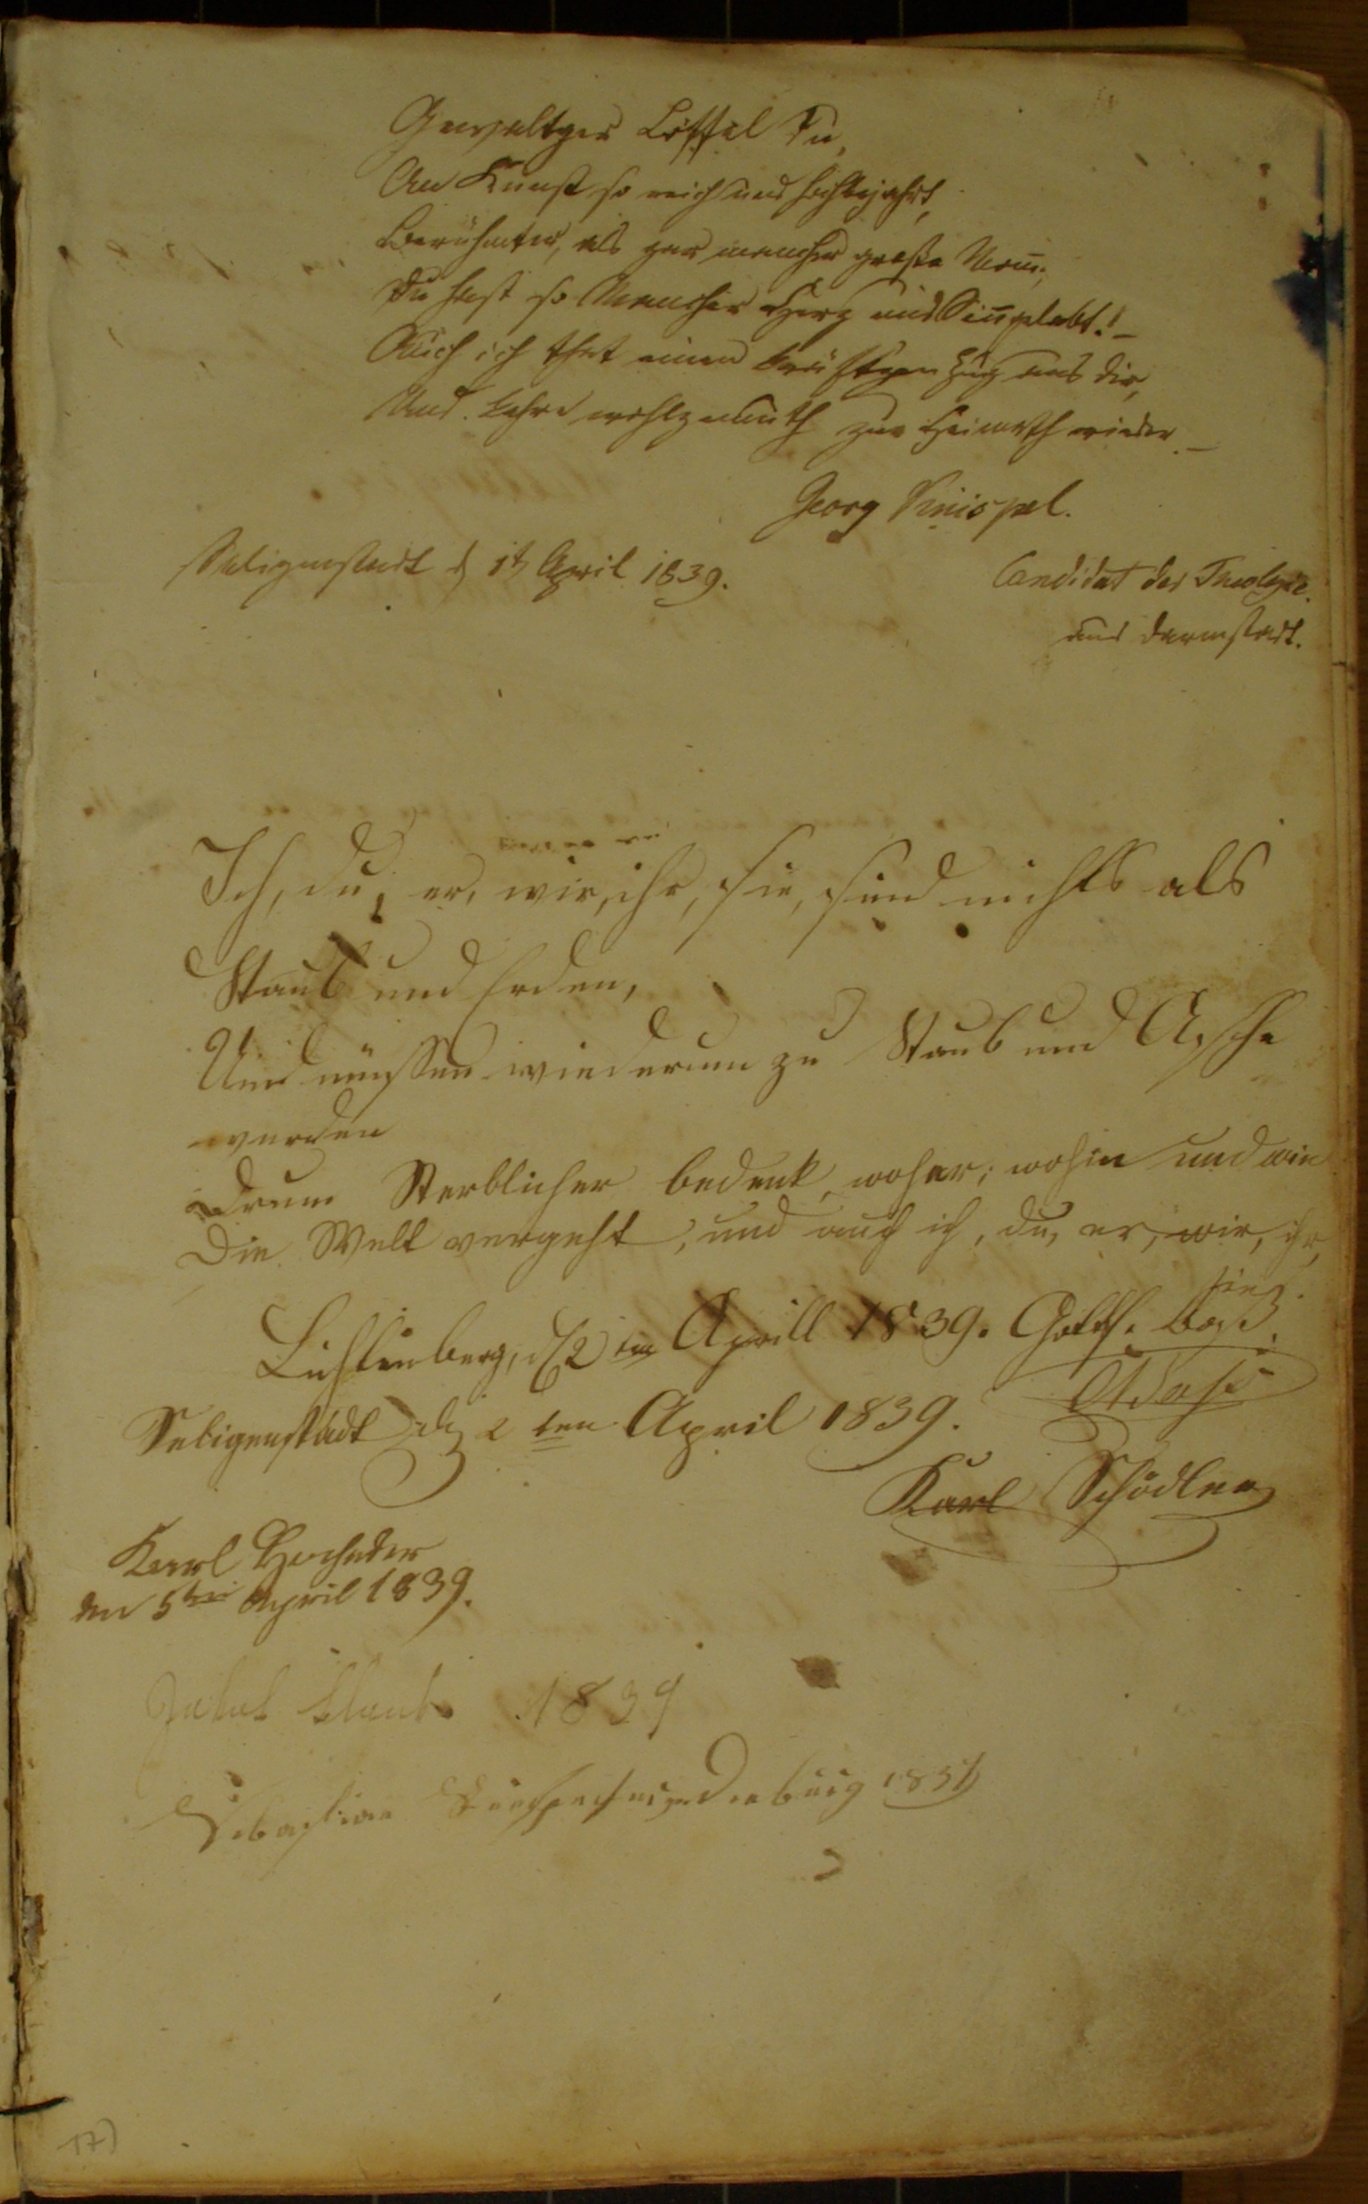 Gewaltger Löffel du,
An Kunst so reich und hochbejahrt,
Berühmter, als gar mancher große Mann,
Du hast so Mancher Herz und Sinn gelabt! –
Auch ich that einen kräftgen Zug aus dir,
Und kehre wohlgemuth zur Heimath wieder. –
Georg
Seligenstadt d 1t April 1839.
Candidat der Theologie.
aus Darmstadt.
Ich, du, er, wir, ihr, sie, sind nichts als
Staub und Erden,
Und müssen wiederum zu Staub und Asche
werden
Drum Sterblicher bedenk woher, wohin und wie
Die Welt vergeht, und auch ich, du, er, wir, ihr,
sie.
Lichtenberg, d 2 ten Aprill 1839.
Seligenstadt d 2 ten April 1839.
Karl Schödler
Karl
den 5ten April 1839.
Jakob 1839
Sebastian
17)